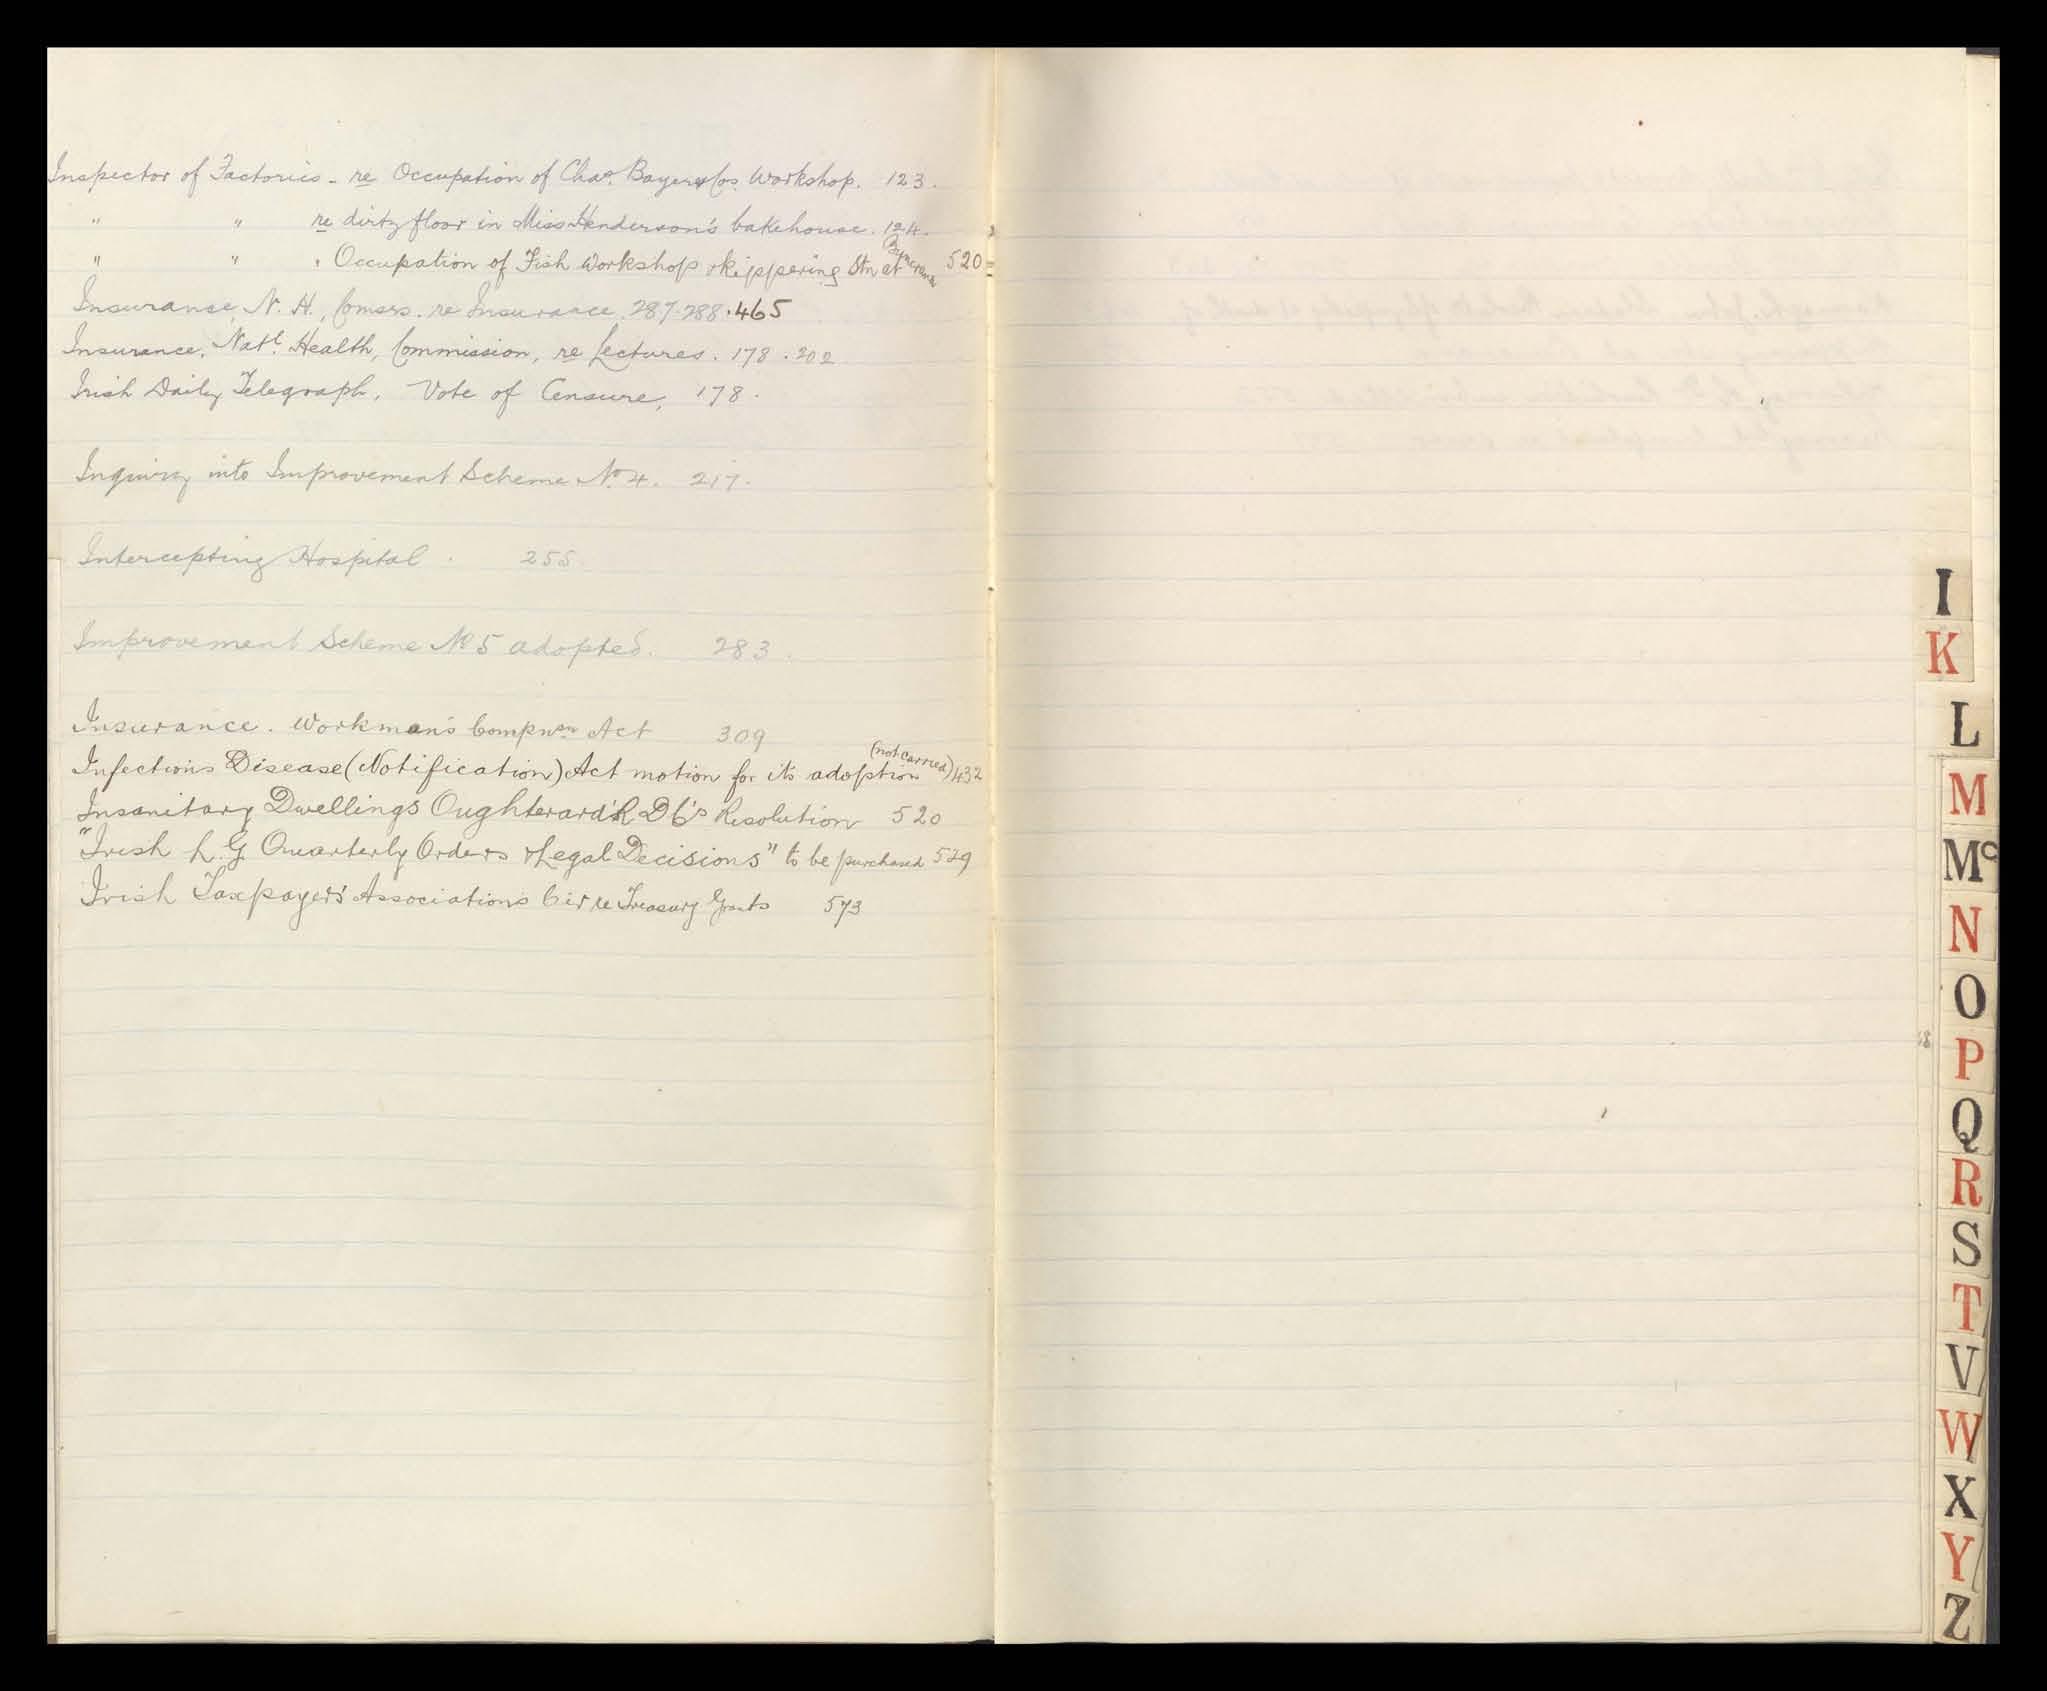 Inspector of Factories - re Occupation of Chas. Bayer & Cos. Workshop. 123.
" " re dirty floor in Miss Henderson's bakehouse. 124.
" " " Occupation of Fish Workshop & kippering Stn at Buncrana 520
Insurance, N. H., Comsrs. re Insurance. 287.288.465
Insurance, Natl. Health, Commission, re Lectures. 178.202
Irish Daily Telegraph, Vote of Censure, 178.
Inquiry into Improvement Scheme No. 4. 217.
Intercepting Hospital. 255.
Improvement Scheme No 5 adopted. 283.
Insurance. Workman's Compnsn Act 309
Infectious Disease (Notification) Act motion for its adoption (not carried) 432
Insanitary Dwellings Oughterard R D C's Resolution 520
"Irish L. G. Quarterly Orders & Legal Decisions" to be purchased 529
Irish Taxpayers' Associations Cir re Treasury Grants 573
I
K
L
M
Mc
N
O
P
Q
R
S
T
V
W
X
Y
Z